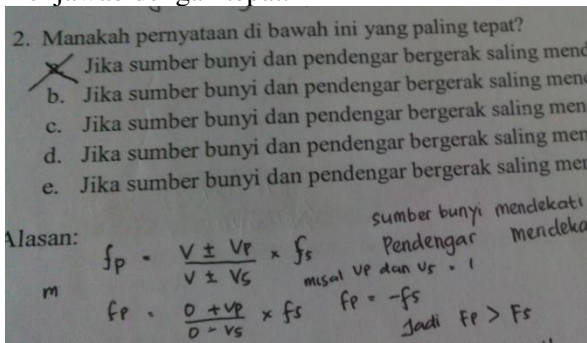 2. Manakah pernyataan di bawah ini yang paling tepat?
Jika sumber bunyi dan pendengar bergerak saling mend
b. Jika sumber bunyi dan pendengar bergerak saling men
c. Jika sumber bunyi dan pendengar bergerak saling men
d. Jika sumber bunyi dan pendengar bergerak saling men
e. Jika sumber bunyi dan pendengar bergerak saling me
Alasan:
sumber bunyi mendekati
Pendengar mendeka
fp = V ± Vp / V ± Vs × fs
misal Vp dan Vs = 1
m
fp = 0 + Vp / 0 - Vs × fs
fp = -fs
Jadi Fp > Fs